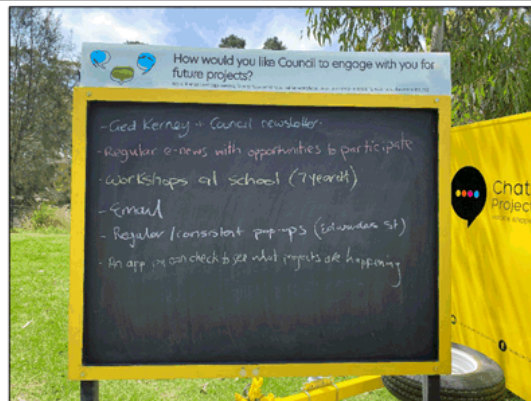 How would you like Council to engage with you for
future projects?
- Ged Kerney + Council newsletter.
- Regular e-news with opportunities to participate
- Workshops at school (7
- Email
- Regular/consistent pop-ups (Edwardes St)
- An app can check to see what projects are happening
Chat
Project